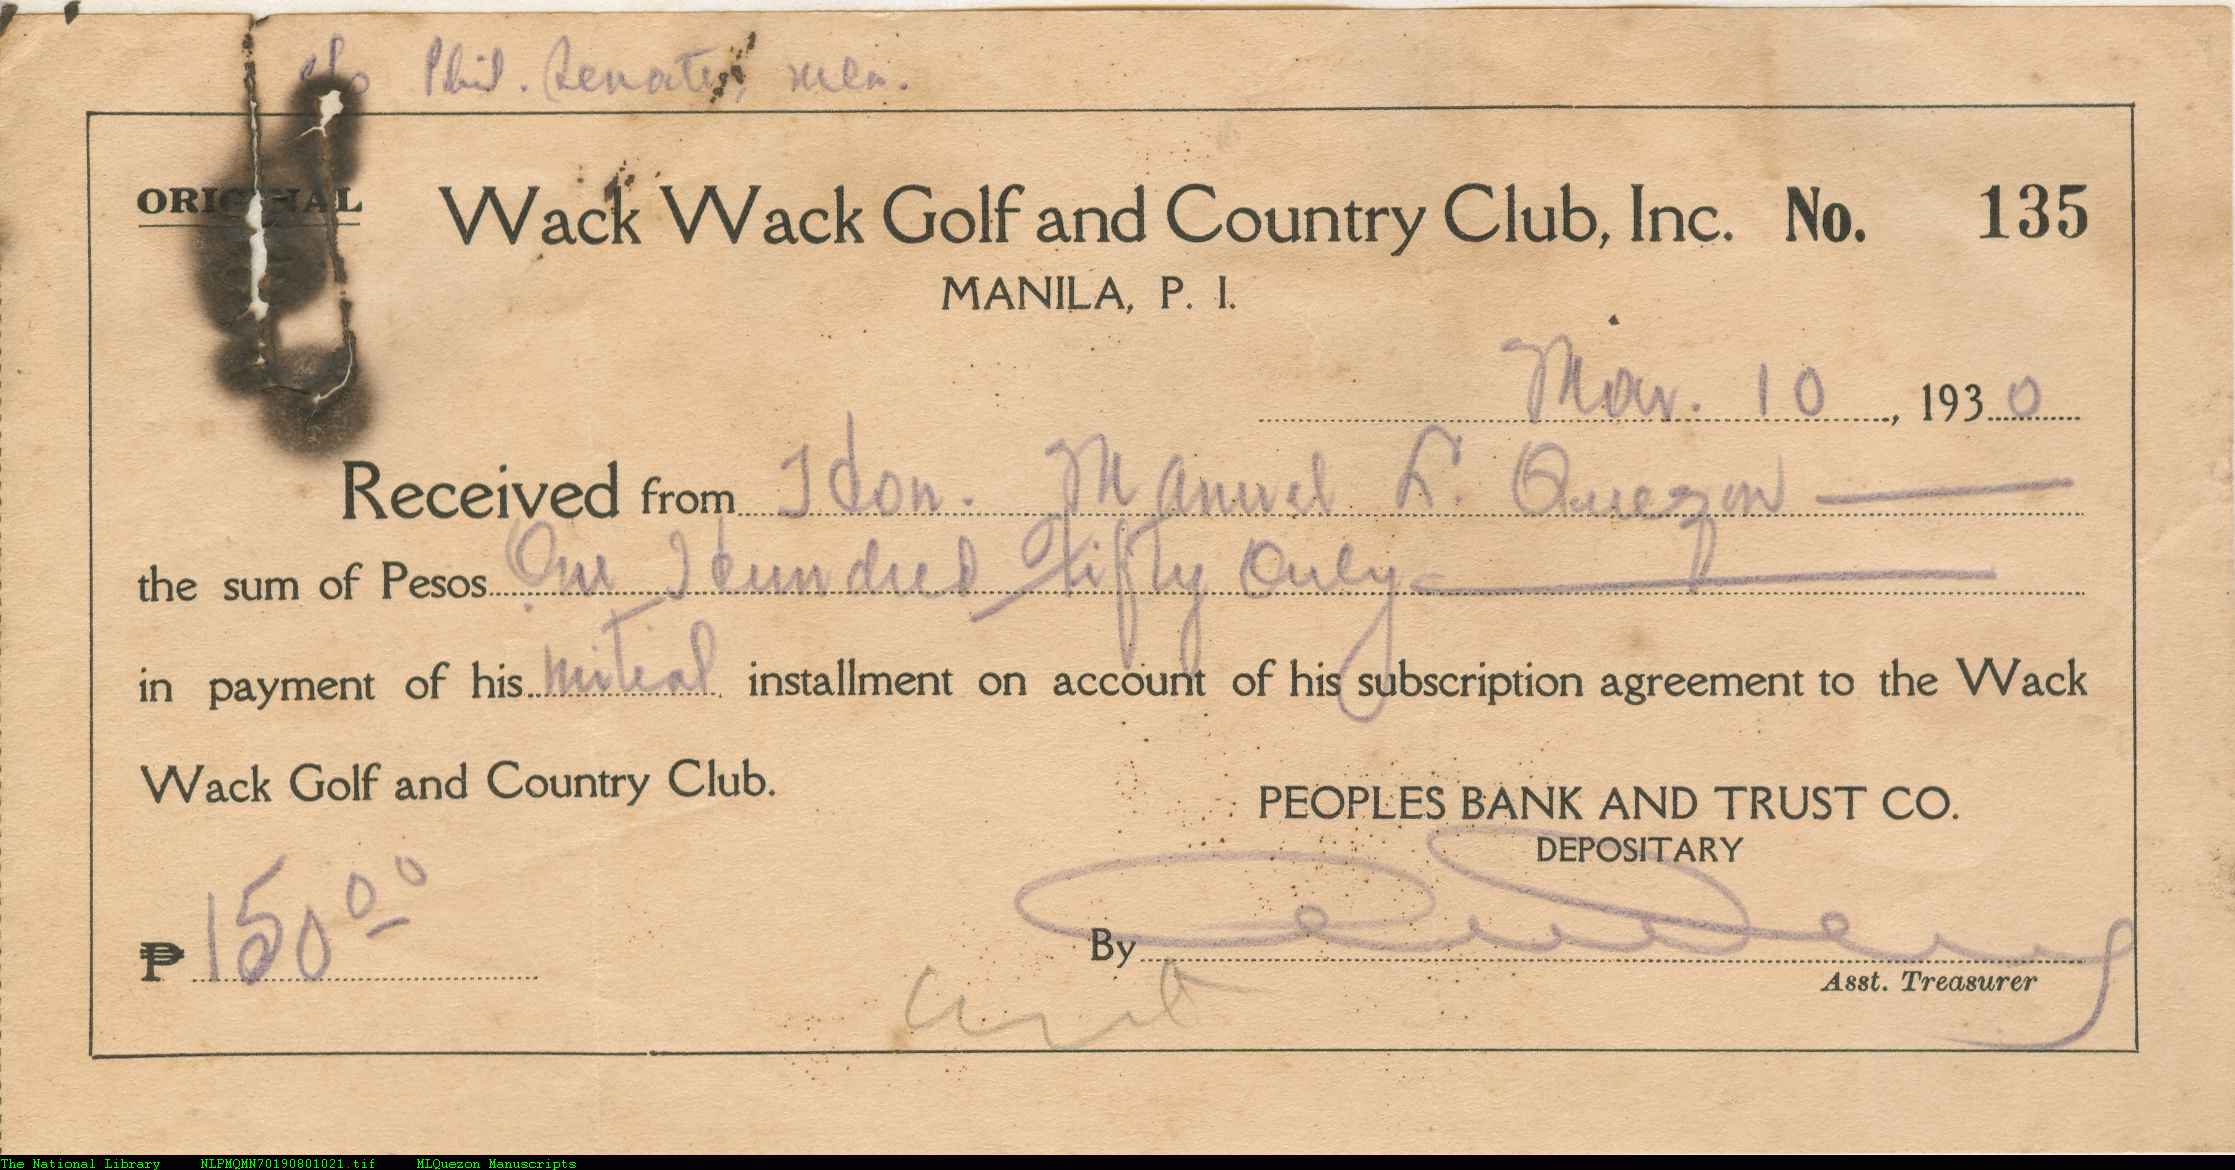 c/o Phil. Senate, Mla.
ORIGINAL
Wack Wack Golf and Country Club, Inc. No. 135
MANILA, P. I.
Mar. 10, 1930
Received from Hon. Manuel L. Quezon
the sum of Pesos One Hundred Fifty Only
in payment of his initial installment on account of his subscription agreement to the Wack
Wack Golf and Country Club.
PEOPLES BANK AND TRUST CO.
DEPOSITARY
₱ 150.00
By
Asst. Treasurer
The National Library NLPMQMN70190801021.tif MLQuezon Manuscripts